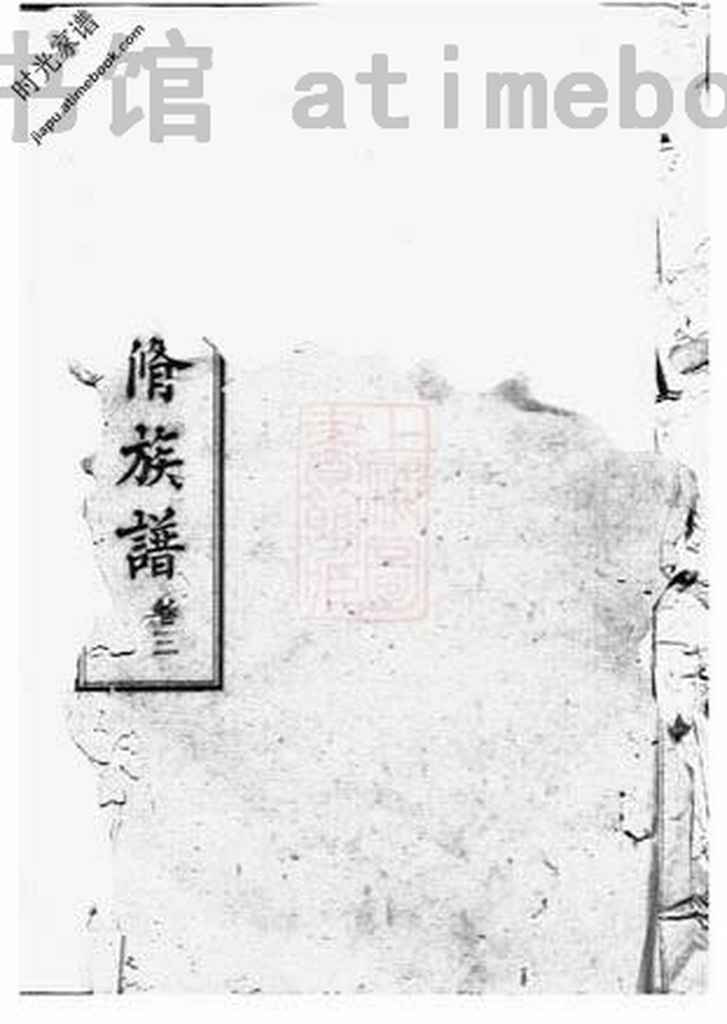 时光家谱
jiapu.atimebook.com
书馆 atimebo
脩族譜
卷三